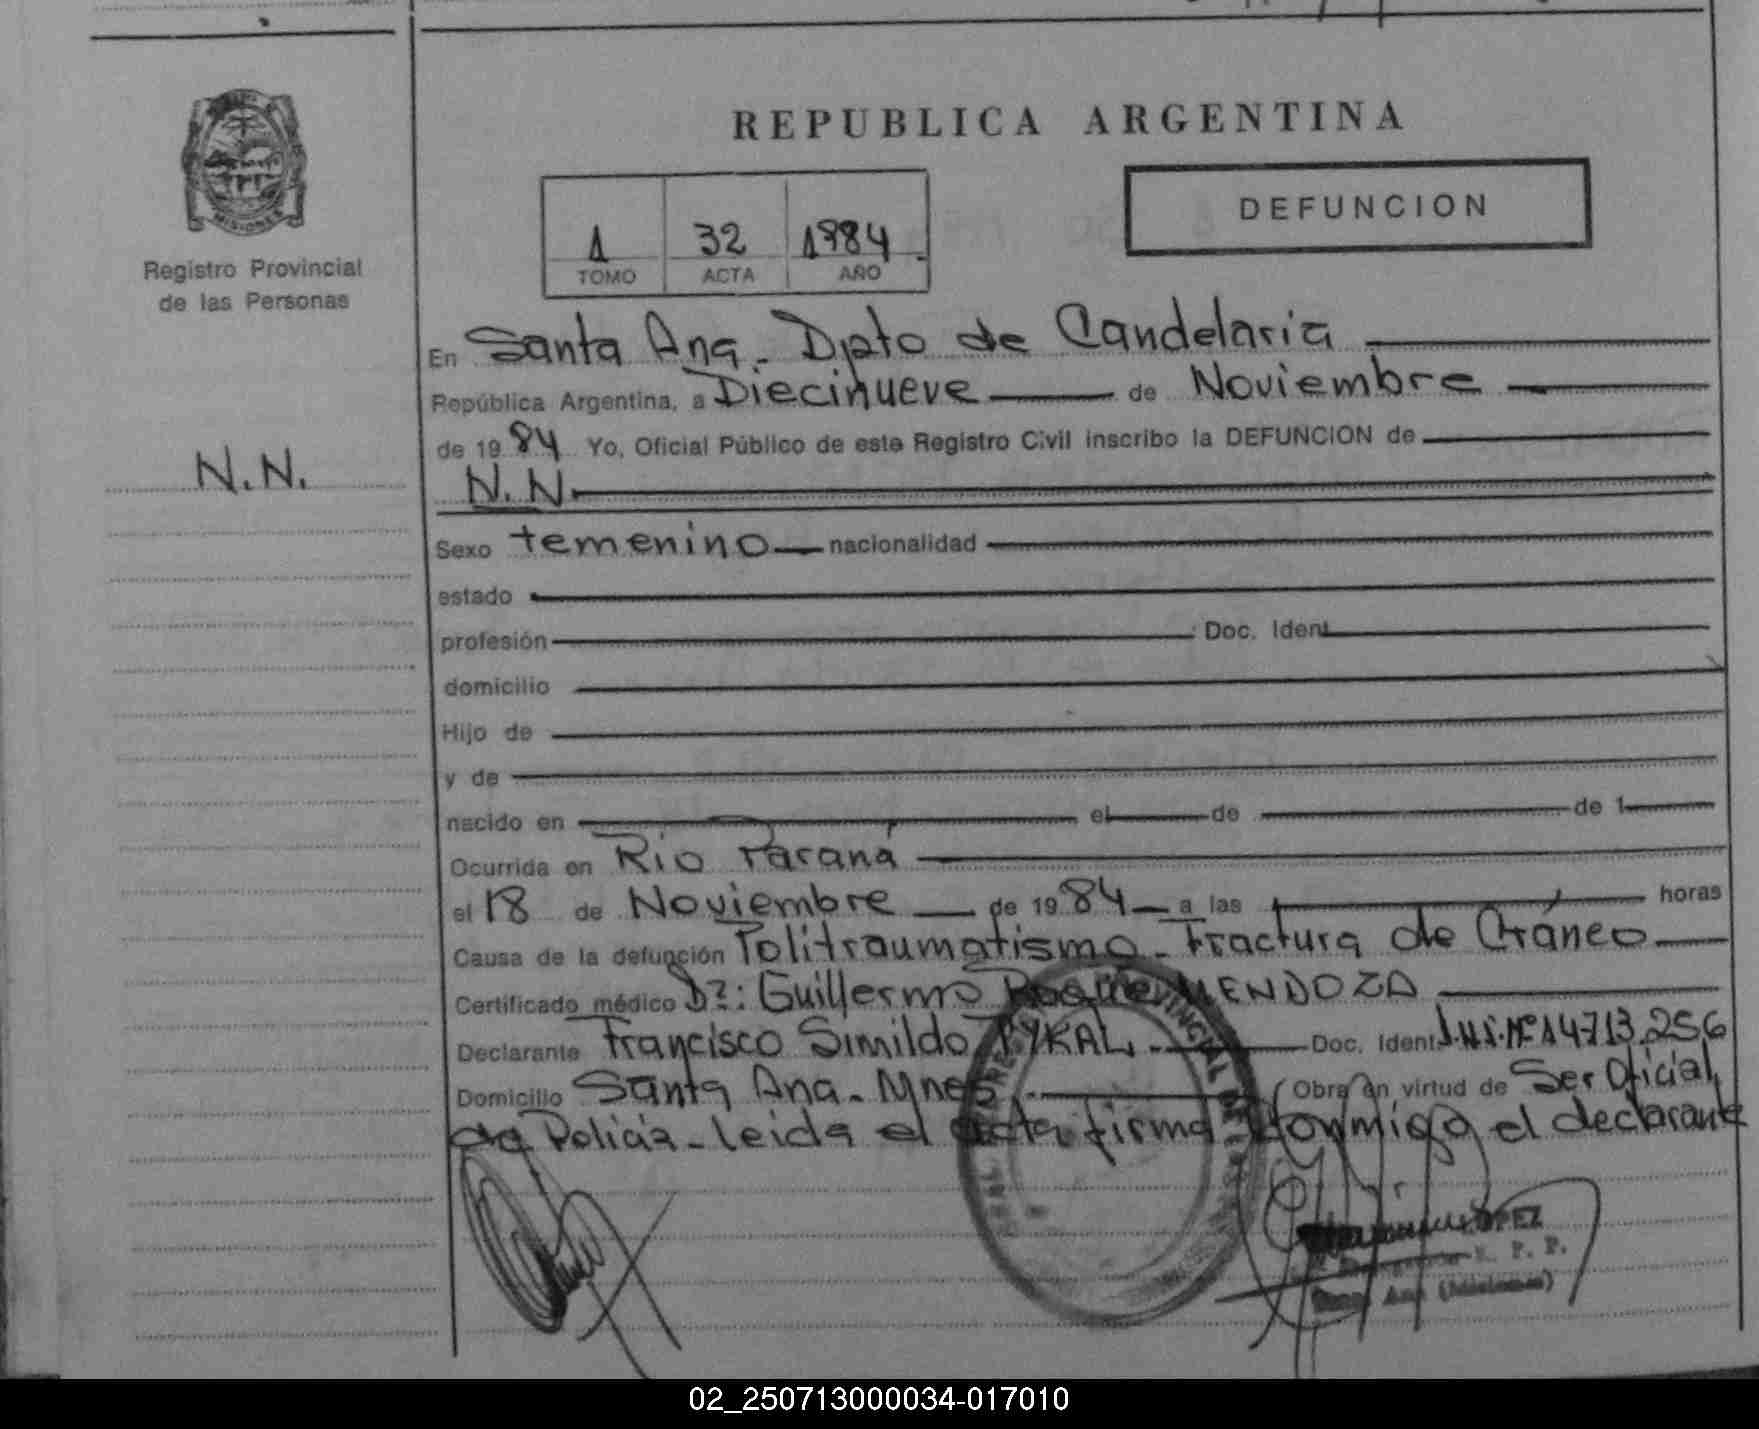 MISIONES
Registro Provincial
de las Personas
N.N.
REPUBLICA ARGENTINA
1 32 1984
TOMO ACTA AÑO
DEFUNCION
En Santa Ana. Dpto de Candelaria
República Argentina, a Diecinueve de Noviembre
de 1984 Yo, Oficial Público de este Registro Civil inscribo la DEFUNCION de
N. N.
Sexo femenino nacionalidad
estado
profesión Doc. Ident.
domicilio
Hijo de
y de
nacido en el de de 1
Ocurrida en Río Paraná
el 18 de Noviembre de 1984 a las horas
Causa de la defunción Politraumatismo - Fractura de Cráneo
Certificado médico Dr: Guillermo Roque MENDOZA
Declarante Francisco Simildo PYKAL. Doc. Ident. Nº 14713.256
Domicilio Santa Ana. Mnes. Obra en virtud de Ser Oficial
de Policía - leida el acta firma conmigo el declarante
LOPEZ
R. P. P.
Ana (Misiones)
02_250713000034-017010